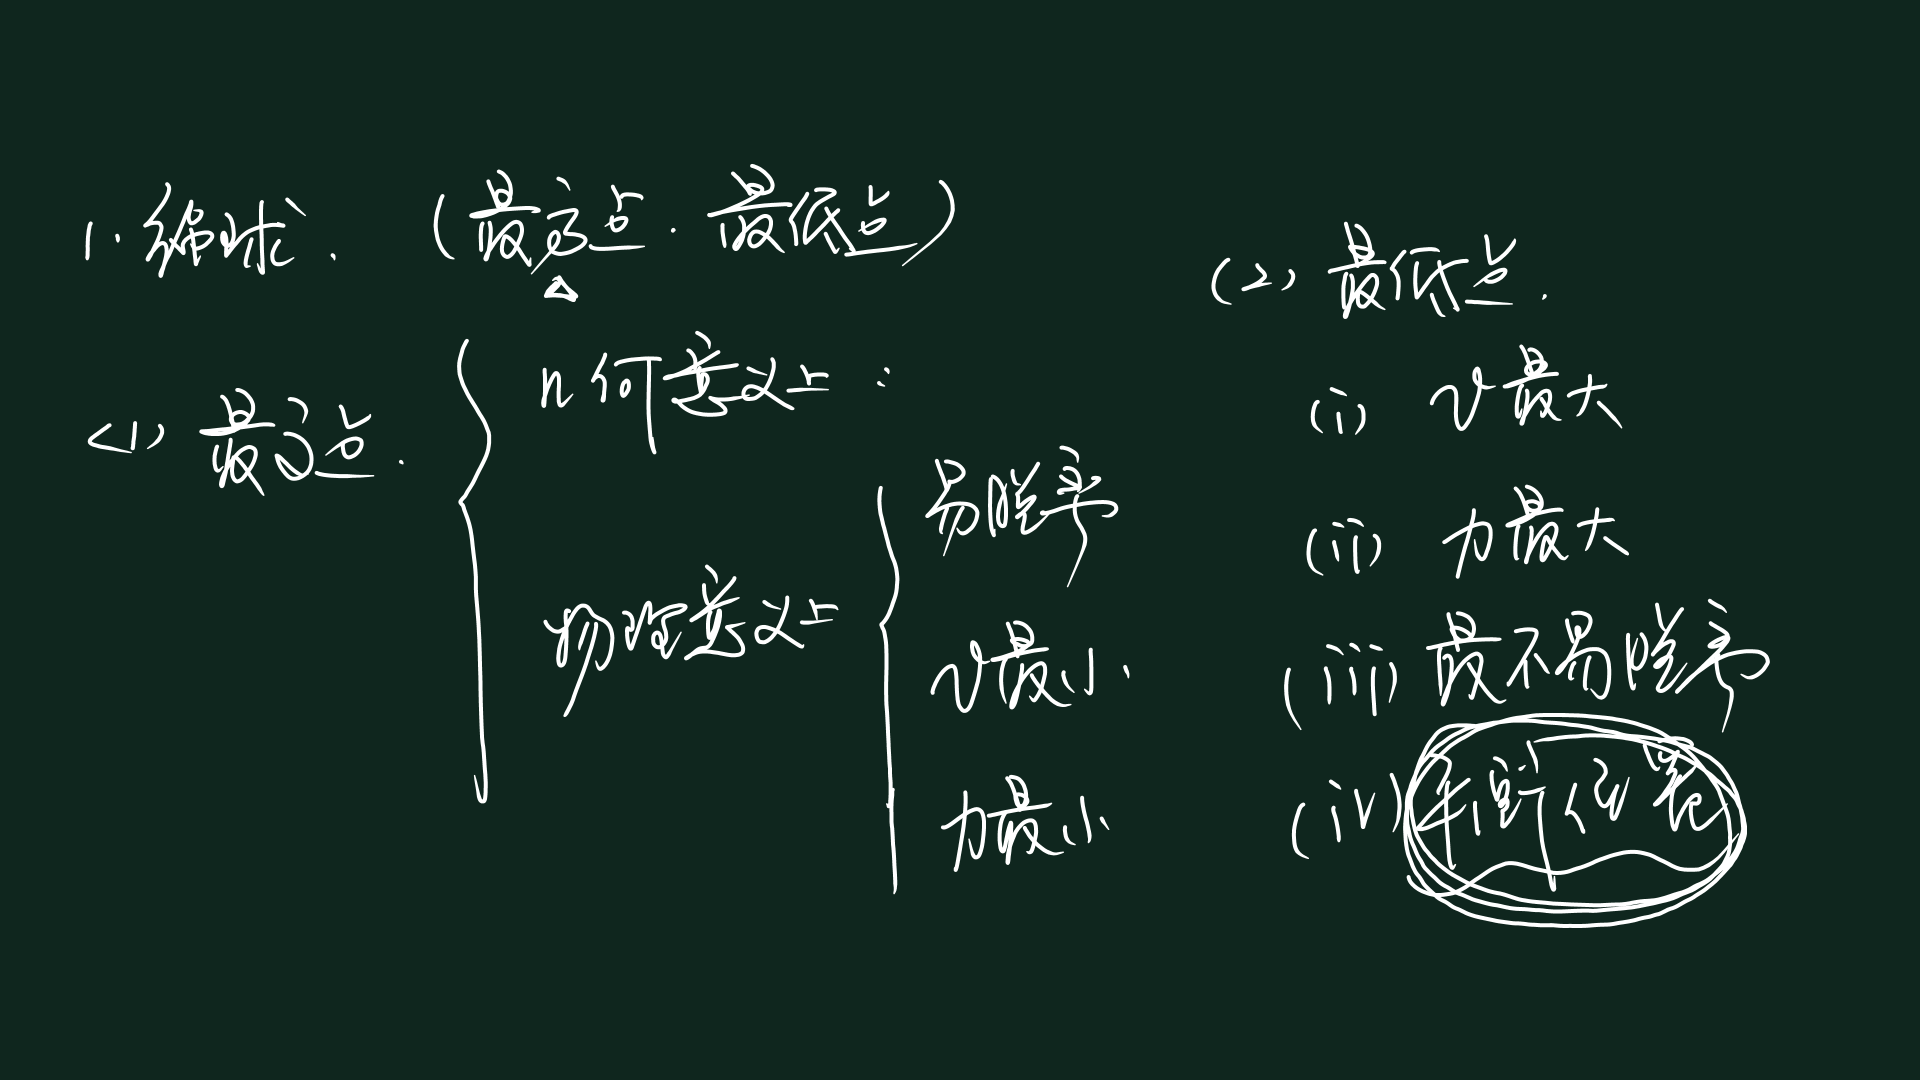 1. 绳球. (最高点. 最低点)
(1) 最高点.
几何意义上:
物理意义上
易脱离
v最小.
力最小
(2) 最低点.
(i) v最大
(ii) 力最大
(iii) 最不易脱离
(iv) 平衡位置